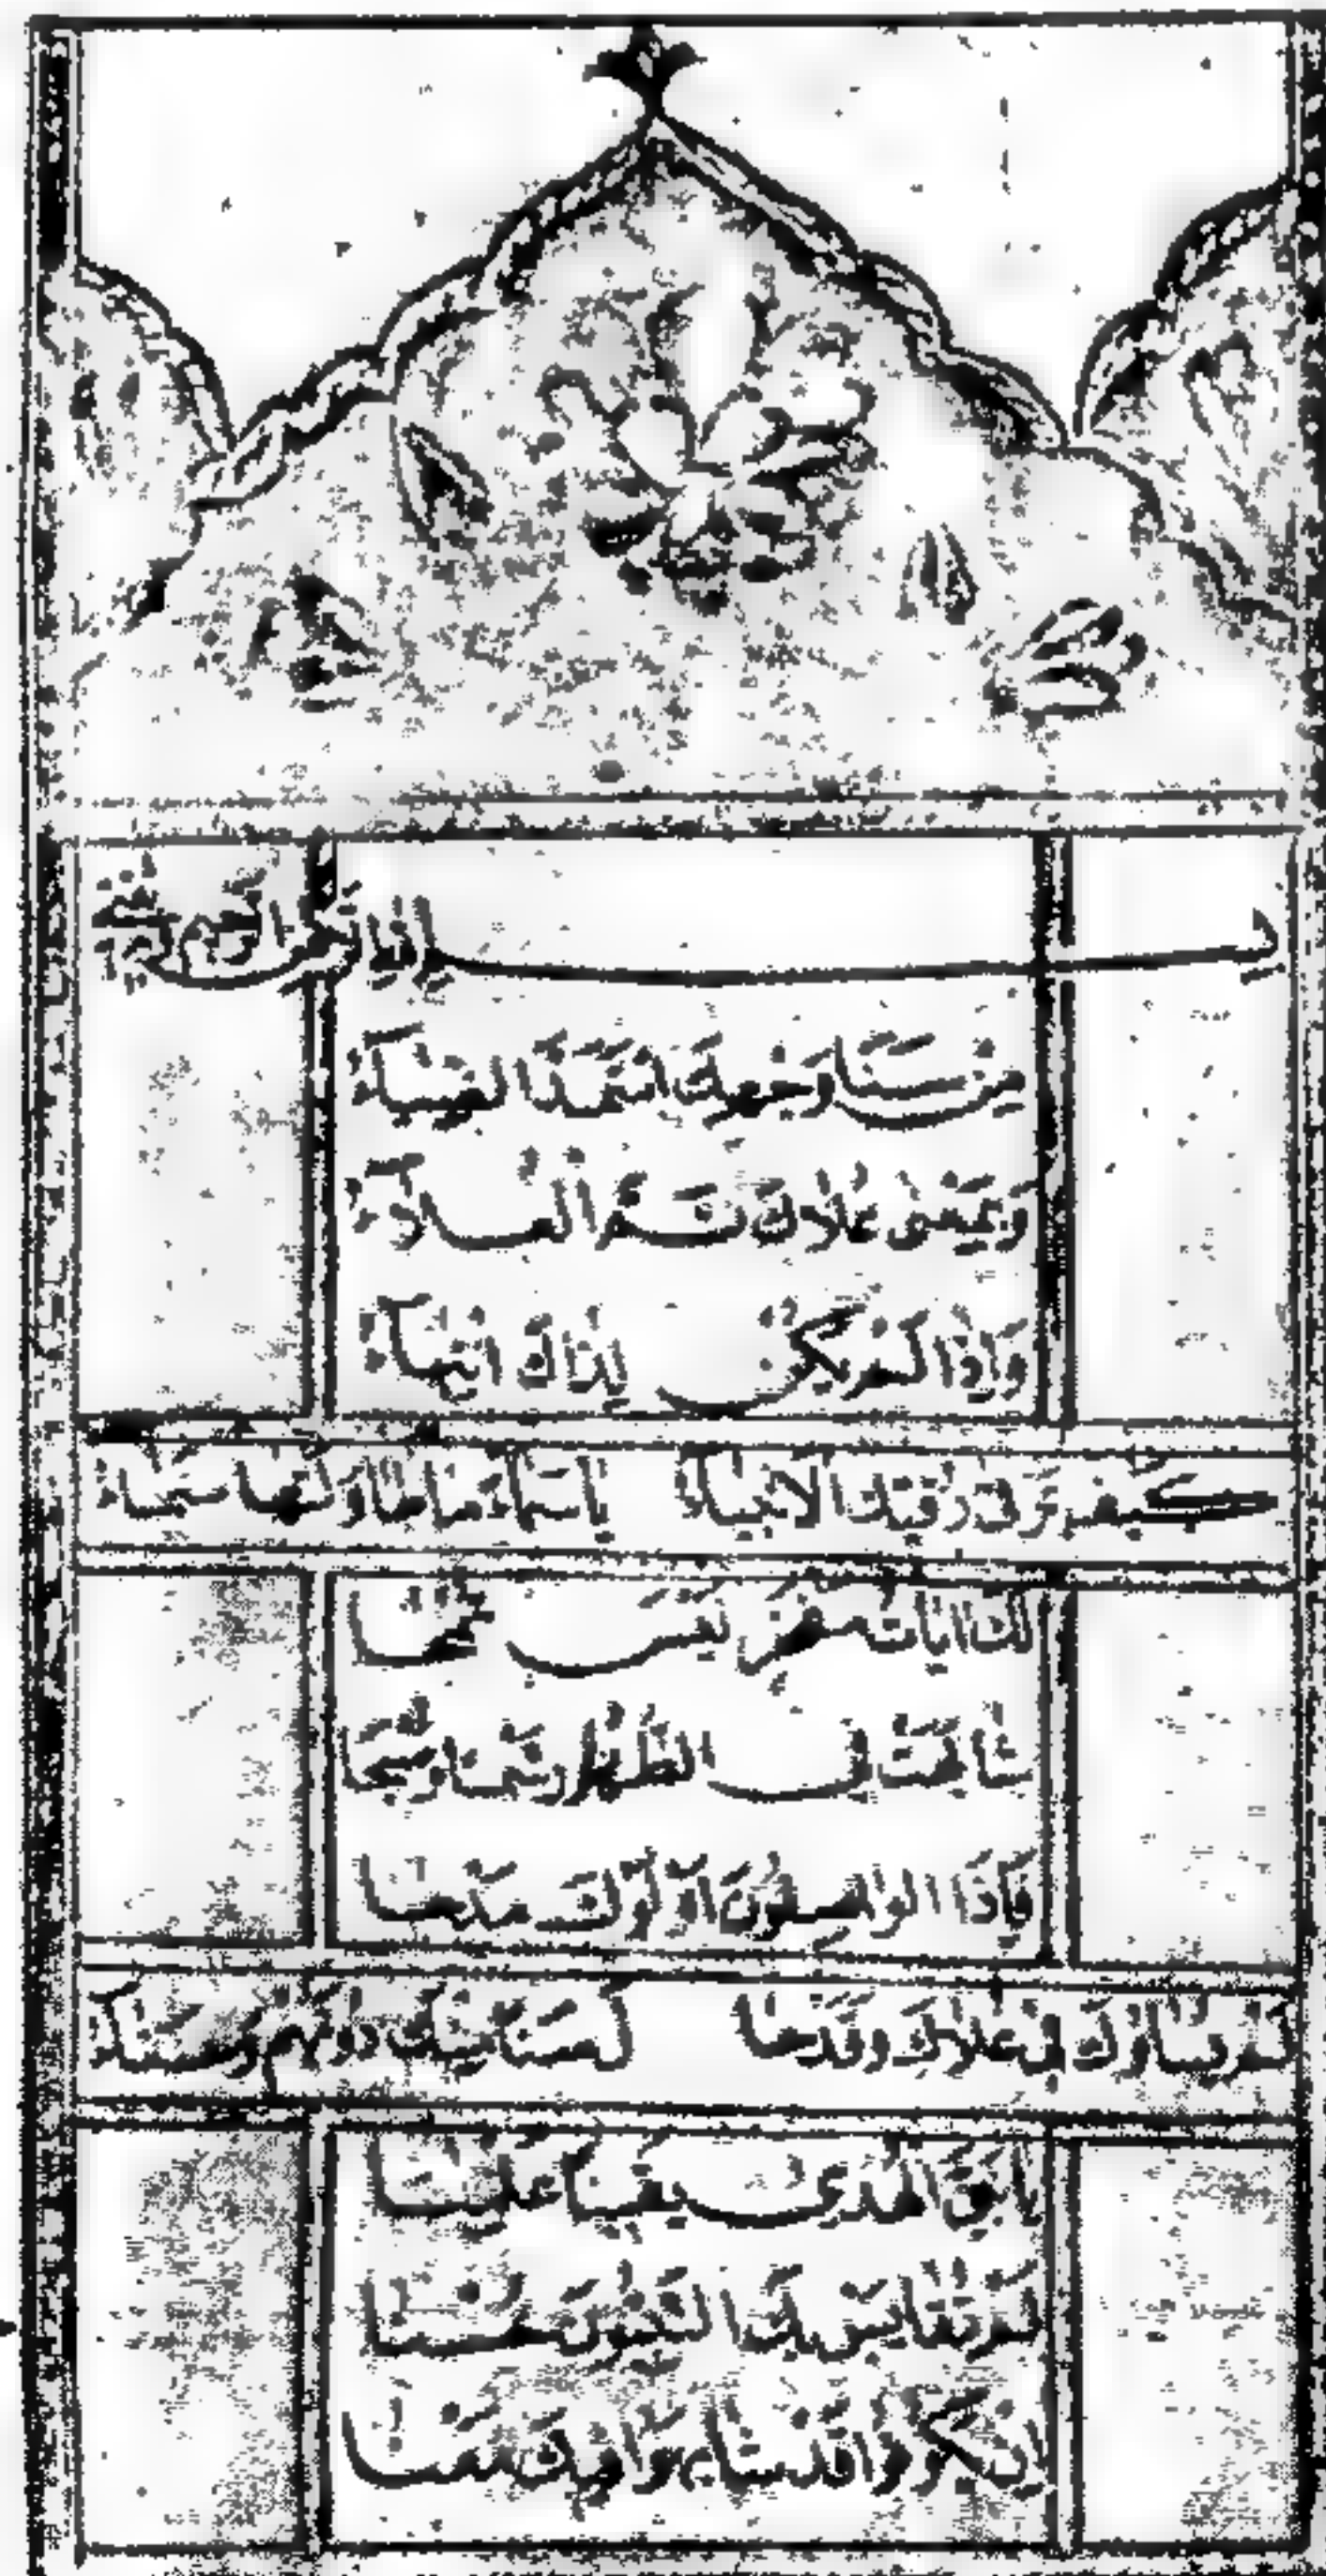 بسم الله الرحمن الرحيم
من سنا وجهك استمد الضياء
وبمعنى علاك تم العلاء
واذا لم يكن لذاك انتهاء
كيف ترقى رقيك الانبياء ياسماء ما طاولتها سماء
لك ايات معجز ليس تمحا
شايعت في الظهور شمسا وصبحا
فاذا الواصفون اولوك مدحا
لم يساووك في علاك وقد حا ل سنا منك دونهم وسناء
يا نبي الهدى يقينا علينا
لم تقايس بك النبيون حسنا
ان يكونوا قد شابهوا فيك معنا